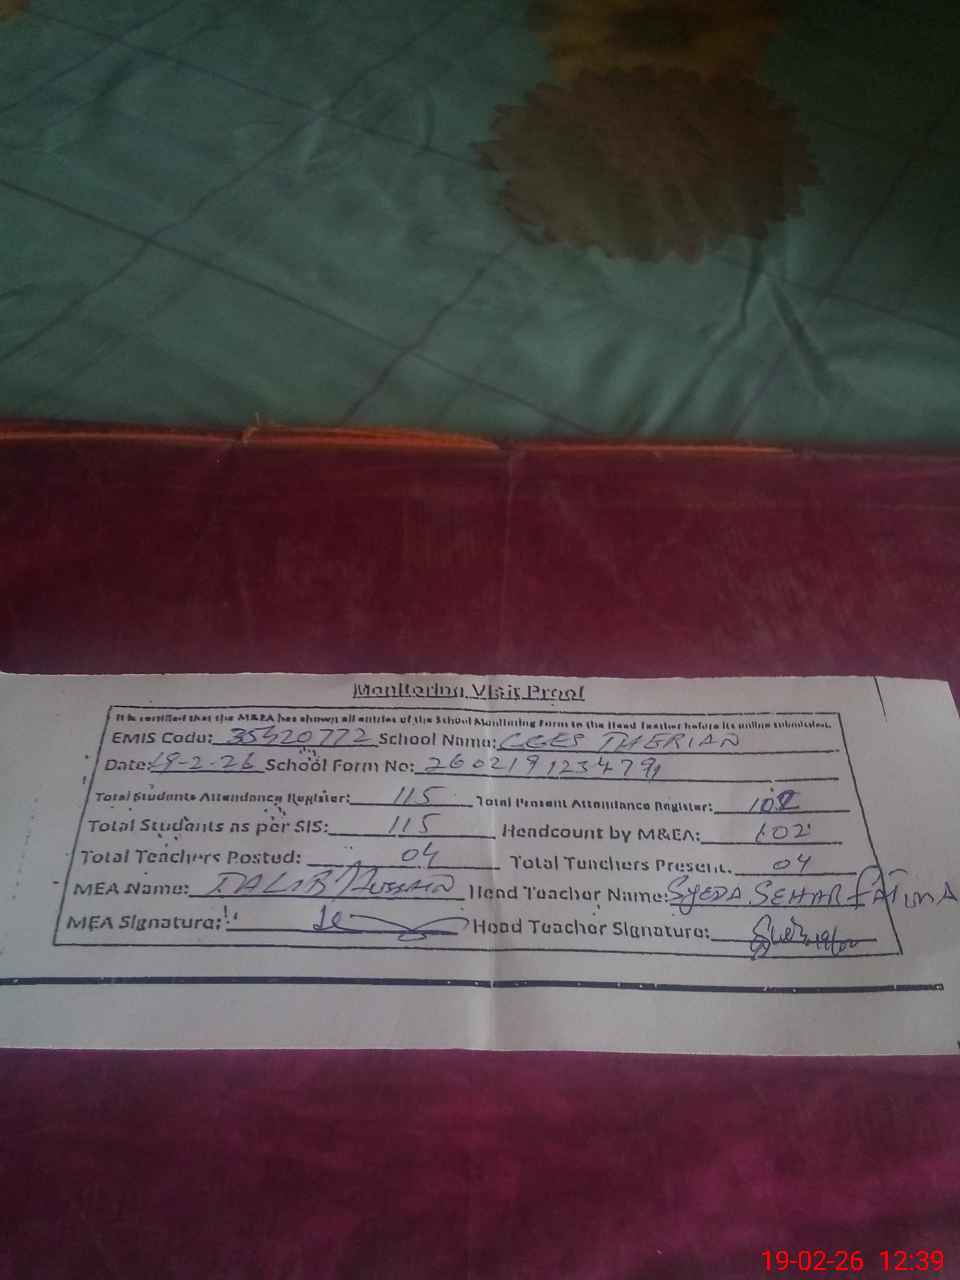 Monitoring Visit Proof
It is certified that the M&EA has shown all entries of the School Monitoring Form to the Head Teacher before its online submission.
EMIS Code: 35420772 School Name: GGES THERIAN
Date: 19-2-26 School Form No: 260219123479
Total Students Attendance Register: 115 Total Present Attendance Register: 102
Total Students as per SIS: 115 Headcount by M&EA: 102
Total Teachers Posted: 04 Total Teachers Present: 04
MEA Name: Hussain Head Teacher Name: SYEDA SEHAR FATIMA
MEA Signature: Head Teacher Signature:
19-02-26 12:39